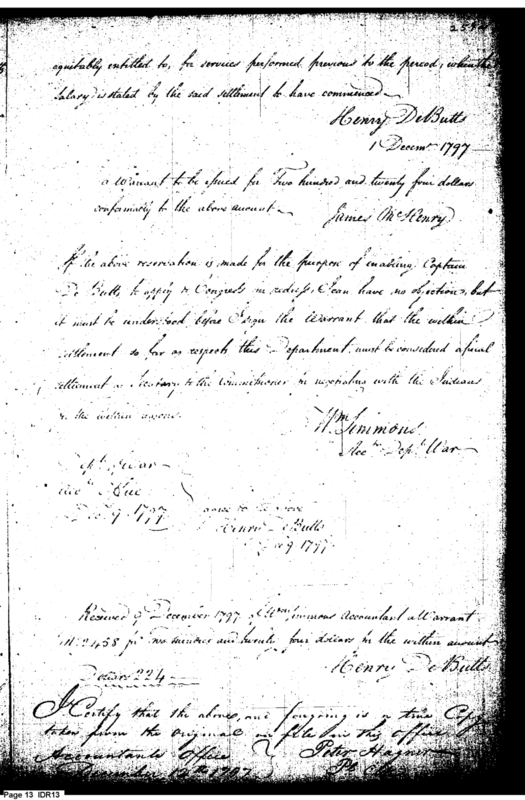 equitably entitled to, for services performed previous to the period, when the
Salary is stated by the said settlement to have commenced
Henry DeButts
1 Decemr 1797
a Warrant to be issued for Two hundred and twenty four dollars
conformably to the above amount
James McHenry
If the above reservation is made for the purpose of enabling Captain
De Butts, to apply to Congress for redress, I can have no objection, but
it must be understood before I sign the Warrant that the within
settlement so far as respects this Department must be considered a final
settlement as Secretary to the Commissioner for negotiating with the Indians
the within
Wm Simmons
Acct. Dept. War
Dept. War
Accts Office
Decr 9. 1797
agree to the above
Henry DeButts
9 1797
Received 9 December 1797 of Wm Simmons Accountant a Warrant
No 2458 for Two hundred and twenty four dollars in the within amount
Dollars 224
Henry DeButts
I Certify that the above and forgoing is a true Copy
taken from the Original on file in this Office
Accountants Office
Peter Hagner
1797
Page 13 IDR13